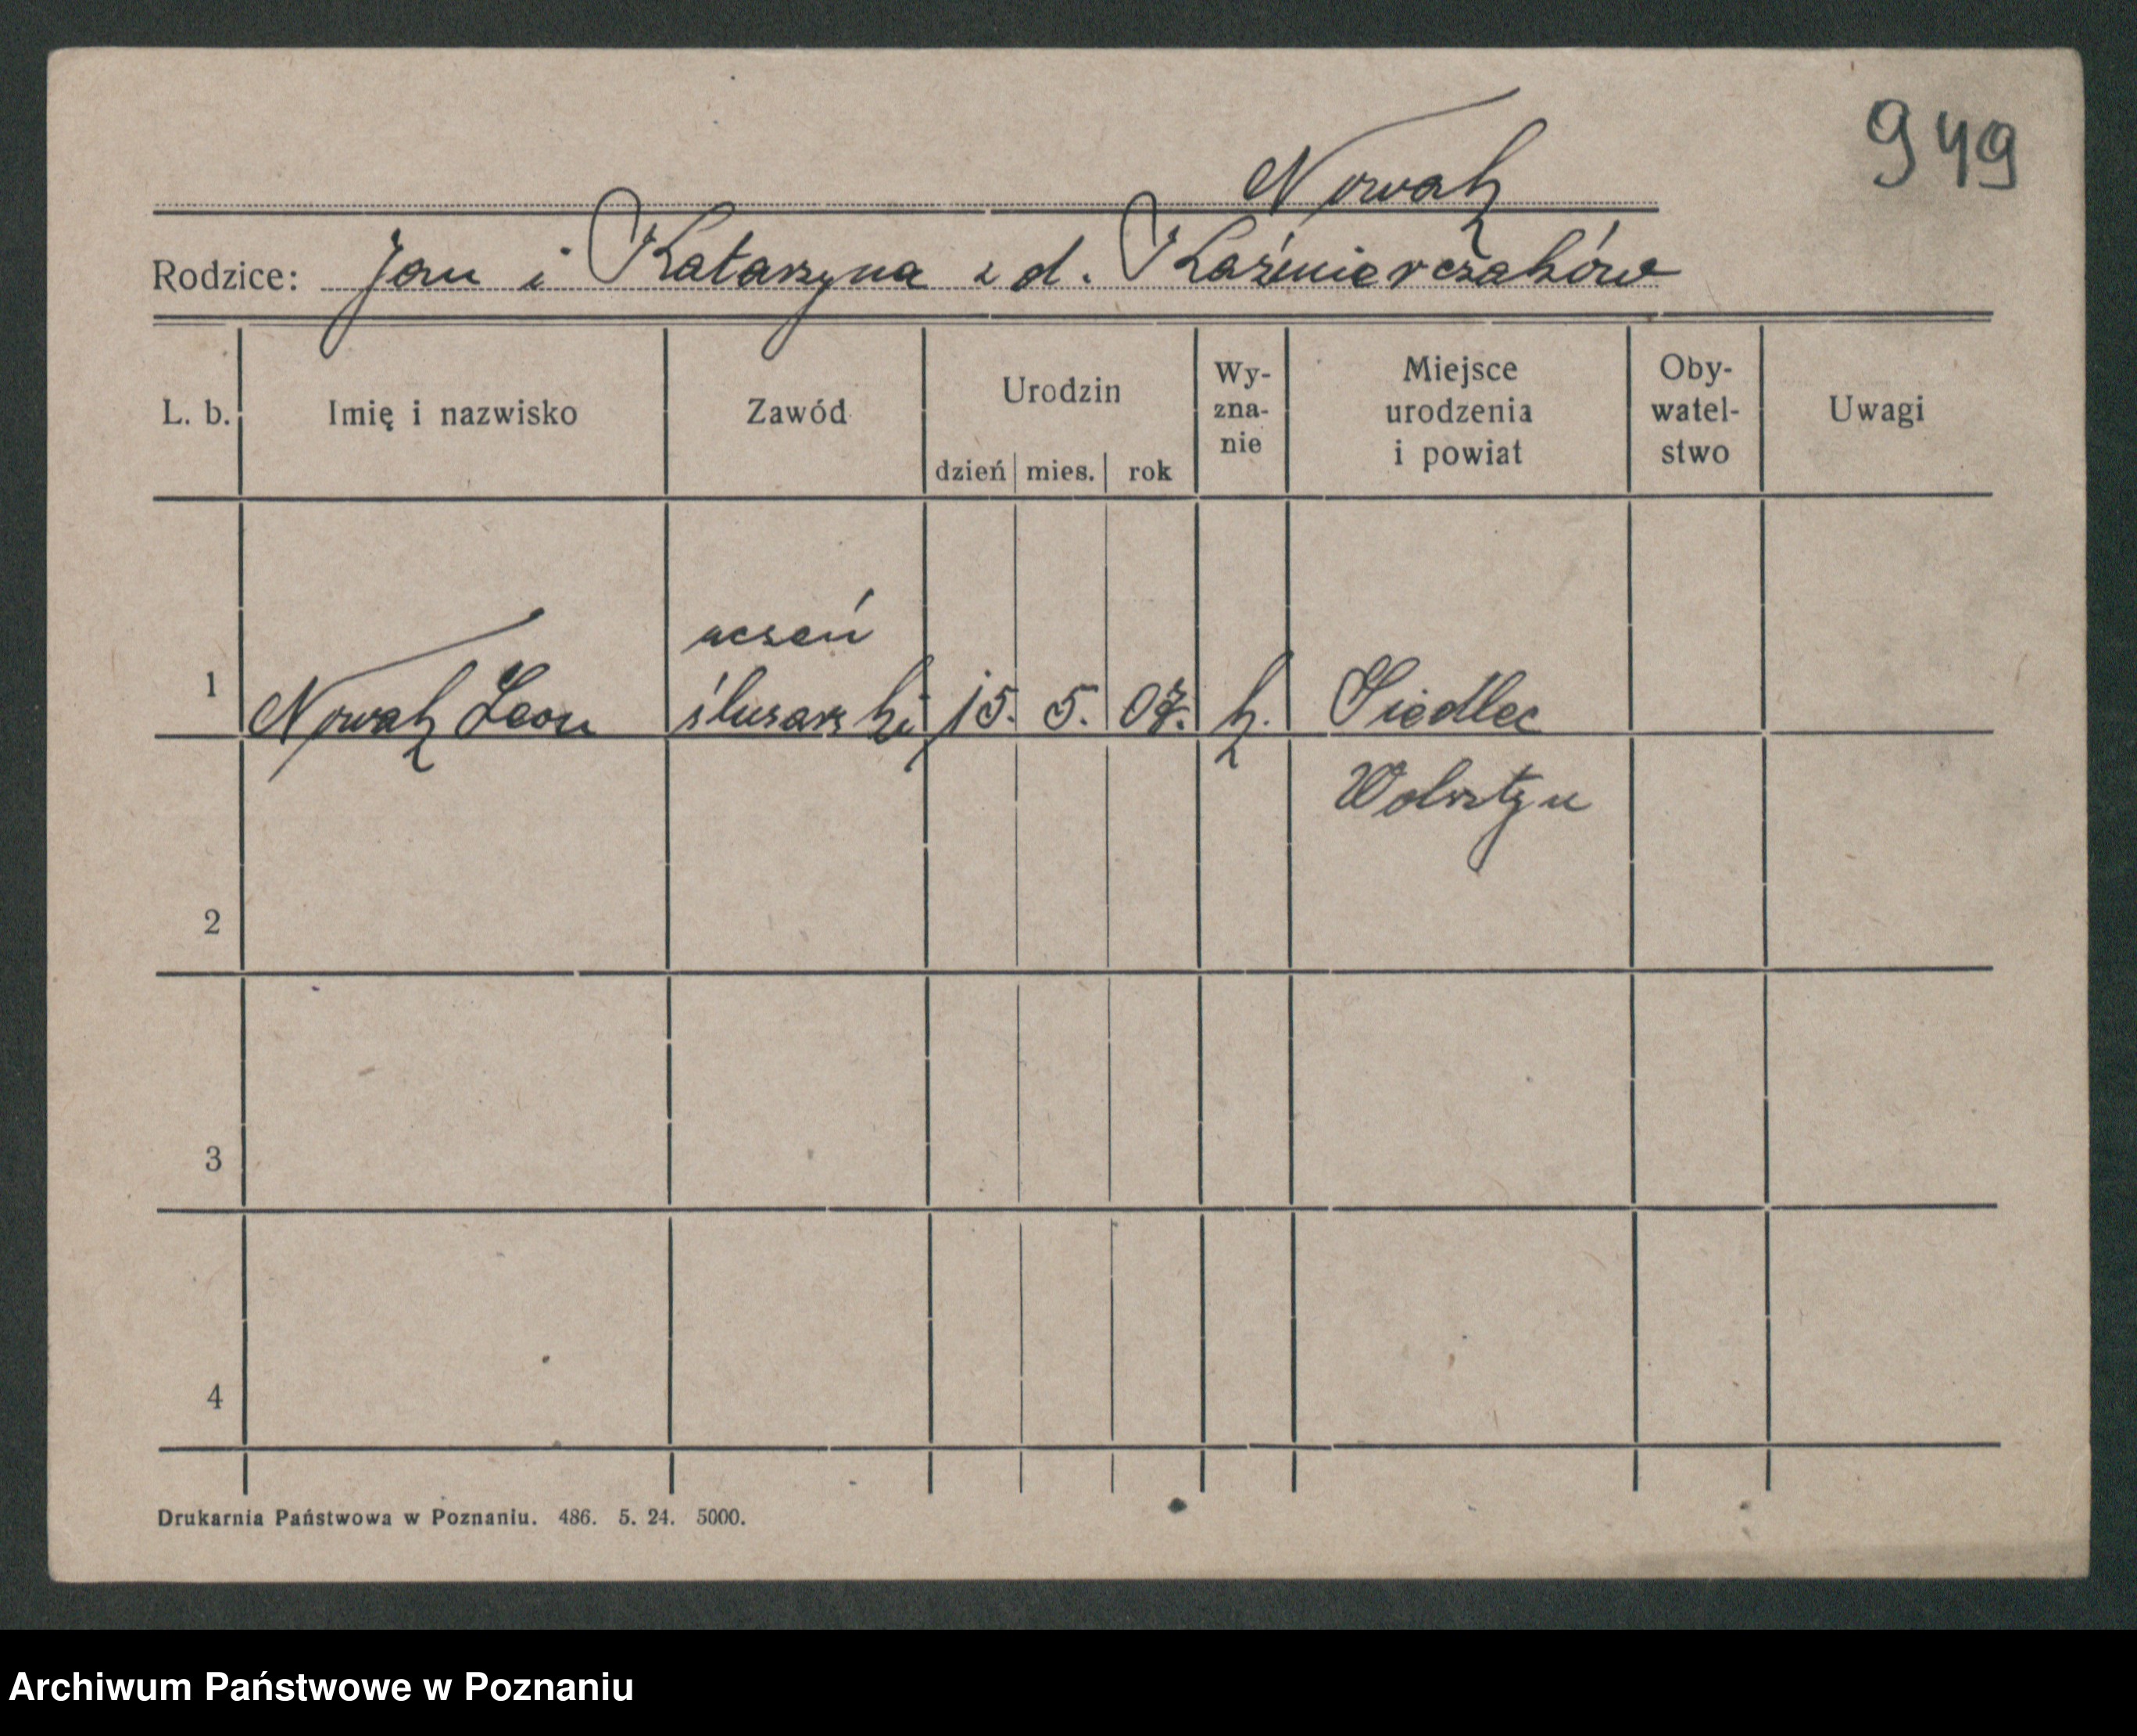 949
Nowak
Rodzice: Jan i Katarzyna z d. Kaźmierczaków
L. b. Imię i nazwisko Zawód Urodzin dzień mies. rok Wy-zna-nie Miejsce urodzenia i powiat Oby-watel-stwo Uwagi
uczeń
1 Nowak Leon ślusarski 15. 5. 07. k. Siedlec
Wolsztyn
2
3
4
Drukarnia Państwowa w Poznaniu. 486. 5. 24. 5000.
Archiwum Państwowe w Poznaniu